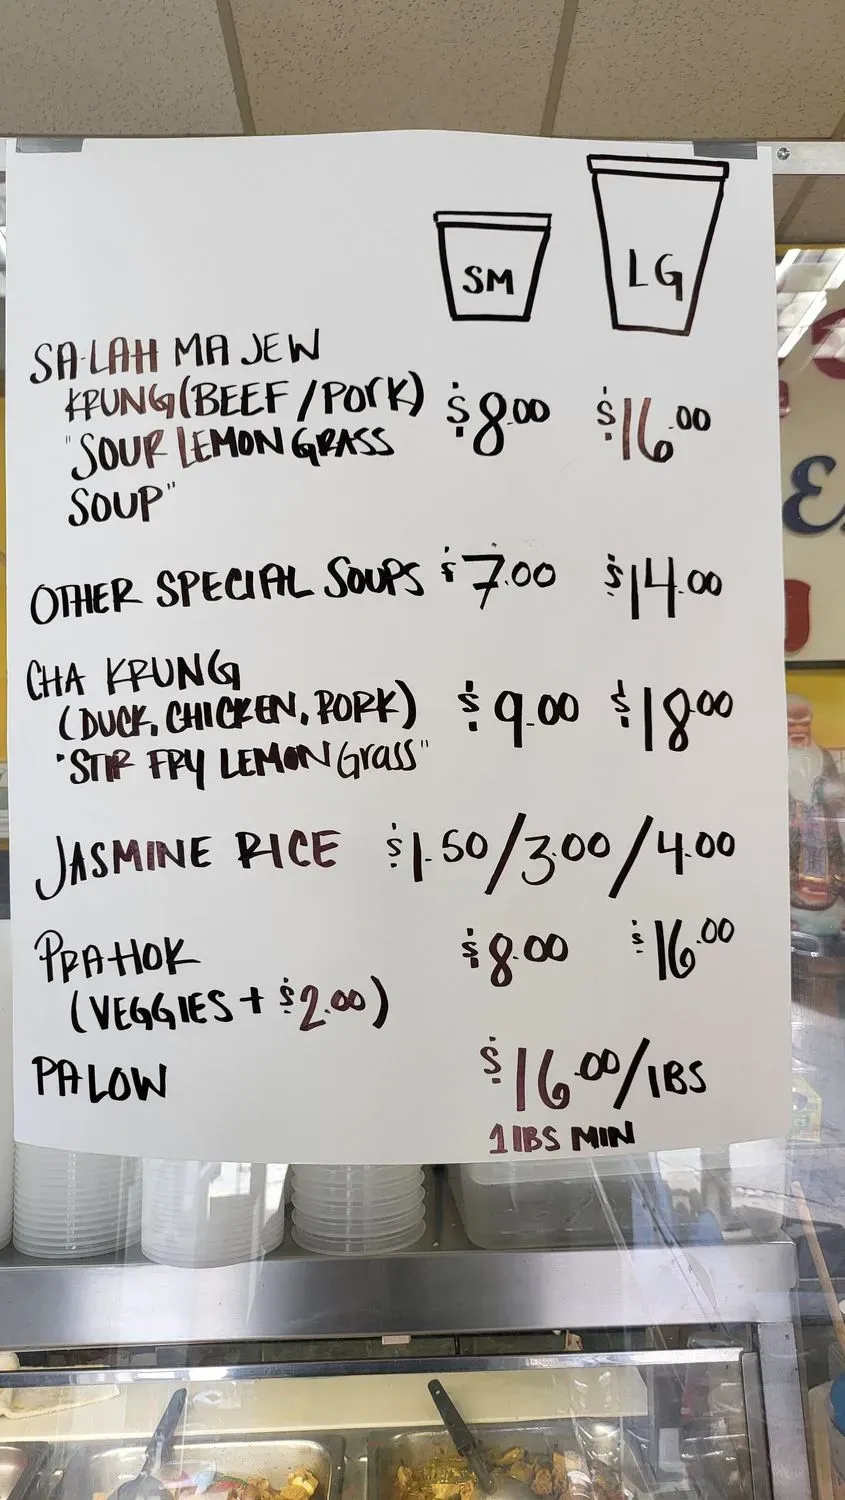 SM LG
SALAH MA JEW
KRUNG (BEEF / PORK) $8.00 $16.00
"SOUR LEMON GRASS
SOUP"
OTHER SPECIAL SOUPS $7.00 $14.00
CHA KRUNG
(DUCK, CHICKEN, PORK) $9.00 $18.00
"STIR FRY LEMON Grass"
JASMINE RICE $1.50/3.00/4.00
PRAHOK $8.00 $16.00
(VEGGIES + $2.00)
PALOW $16.00/1BS
1 1BS MIN